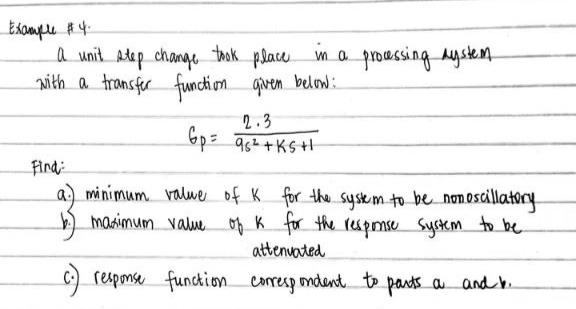 Example #4.
a unit step change took place in a processing system
with a transfer function given below:
Gp = 2.3 / 9s² + KS + 1
Find:
a.) minimum value of K for the system to be nonoscillatory
b.) maximum value of K for the response system to be
attenuated
c.) response function correspondent to parts a and b.